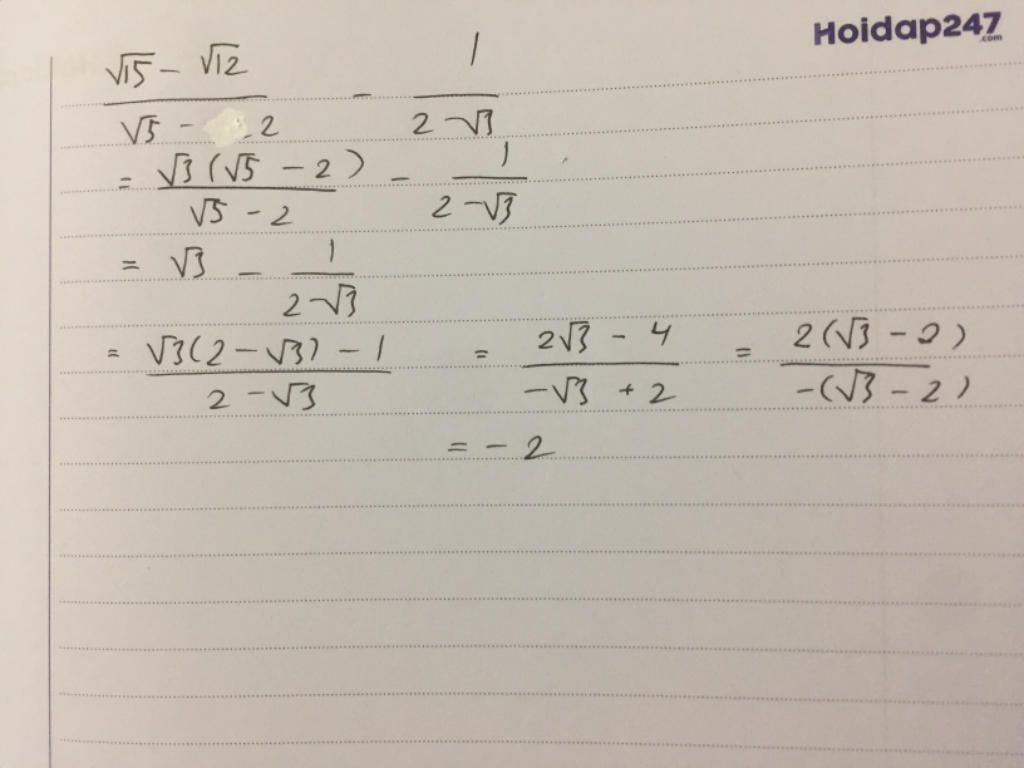 Hoidap247
.com
(√15 - √12)/(√5 - 2) - 1/(2 - √3)
= √3(√5 - 2)/(√5 - 2) - 1/(2 - √3)
= √3 - 1/(2 - √3)
= (√3(2 - √3) - 1)/(2 - √3) = (2√3 - 4)/(-√3 + 2) = 2(√3 - 2)/(-(√3 - 2))
= - 2